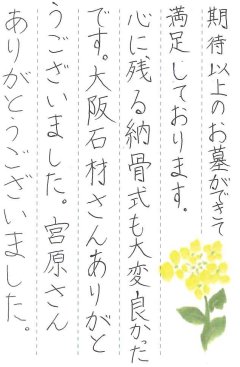 期待以上のお墓ができて
満足しております。
心に残る納骨式も大変良かった
です。大阪石材さんありがと
うございました。宮原さん
ありがとうございました。